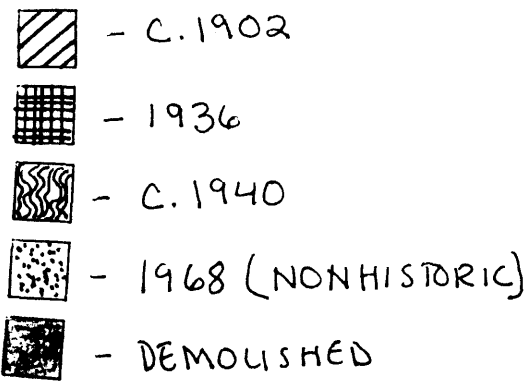 - C. 1902
- 1936
- C. 1940
- 1968 (NONHISTORIC)
- DEMOLISHED